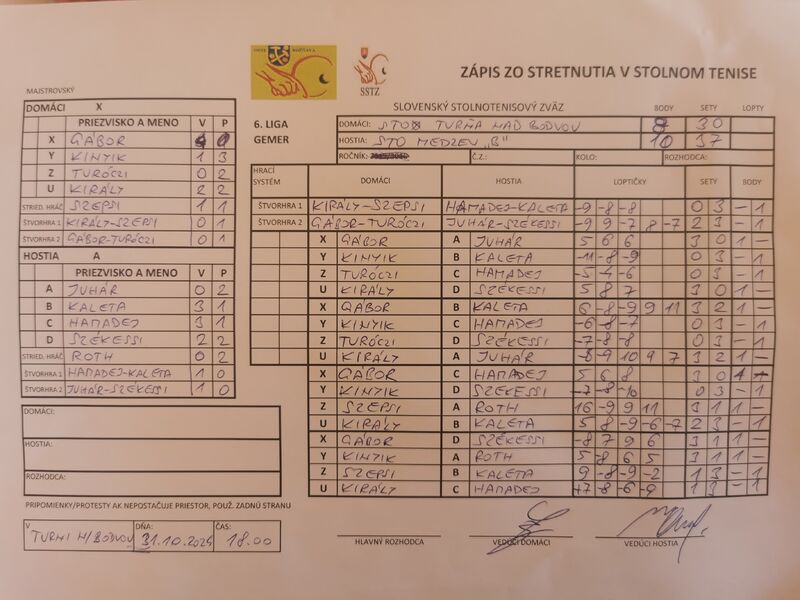 ZÁPIS ZO STRETNUTIA V STOLNOM TENISE
SSTZ
MAJSTROVSKÝ
SLOVENSKÝ STOLNOTENISOVÝ ZVÄZ BODY SETY LOPTY
6. LIGA DOMÁCI: STO TURŇA NAD BODVOU 8 30
GEMER HOSTIA: STO MEDZEV "B" 10 37
ROČNÍK: Č.Z.: KOLO: ROZHODCA:
DOMÁCI X
PRIEZVISKO A MENO V P
X GÁBOR 0
Y KINYIK 1 3
Z TURÓCZI 0 2
U KIRÁLY 2 2
STRIED. HRÁČ SZEPSI 1 1
ŠTVORHRA 1 KIRÁLY-SZEPSI 0 1
ŠTVORHRA 2 GÁBOR-TURÓCZI 0 1
HOSTIA A
PRIEZVISKO A MENO V P
A JUHÁR 0 2
B KALETA 3 1
C HAMADEJ 3 1
D SZÉKESSI 2 2
STRIED. HRÁČ ROTH 0 2
ŠTVORHRA 1 HAMADEJ-KALETA 1 0
ŠTVORHRA 2 JUHÁR-SZÉKESSI 1 0
DOMÁCI:
HOSTIA:
ROZHODCA:
PRIPOMIENKY/PROTESTY AK NEPOSTAČUJE PRIESTOR, POUŽ. ZADNÚ STRANU
V DŇA: ČAS:
TURNI N/BODVOU 31.10.2024 18.00
HRACÍ SYSTÉM DOMÁCI HOSTIA LOPTIČKY SETY BODY
ŠTVORHRA 1 KIRÁLY-SZEPSI HAMADEJ-KALETA -9 -8 -8 0 3 - 1
ŠTVORHRA 2 GÁBOR-TURÓCZI JUHÁR-SZÉKESSI -9 9 -7 8 -7 2 3 - 1
X GÁBOR A JUHÁR 5 6 6 3 0 1 -
Y KINYIK B KALETA -11 -8 -9 0 3 - 1
Z TURÓCZI C HAMADEJ -5 -4 -6 0 3 - 1
U KIRÁLY D SZÉKESSI 5 8 7 3 0 1 -
X GÁBOR B KALETA 6 -8 -9 9 11 3 2 1 -
Y KINYIK C HAMADEJ -6 -8 -7 0 3 - 1
Z TURÓCZI D SZÉKESSI -7 -8 -8 0 3 - 1
U KIRÁLY A JUHÁR -9 10 9 7 3 2 1 -
X GÁBOR C HAMADEJ 5 6 8 3 0 1 -
Y KINYIK D SZÉKESSI -7 -8 -10 0 3 - 1
Z SZEPSI A ROTH 16 -9 9 11 3 1 1 -
U KIRÁLY B KALETA 5 8 -9 -6 -7 2 3 - 1
X GÁBOR D SZÉKESSI -8 7 9 6 3 1 1 -
Y KINYIK A ROTH 5 -8 6 5 3 1 1 -
Z SZEPSI B KALETA 9 -8 -9 -2 1 3 - 1
U KIRÁLY C HAMADEJ -8 -6 -9 1 3 - 1
HLAVNÝ ROZHODCA VEDÚCI DOMÁCI VEDÚCI HOSTIA